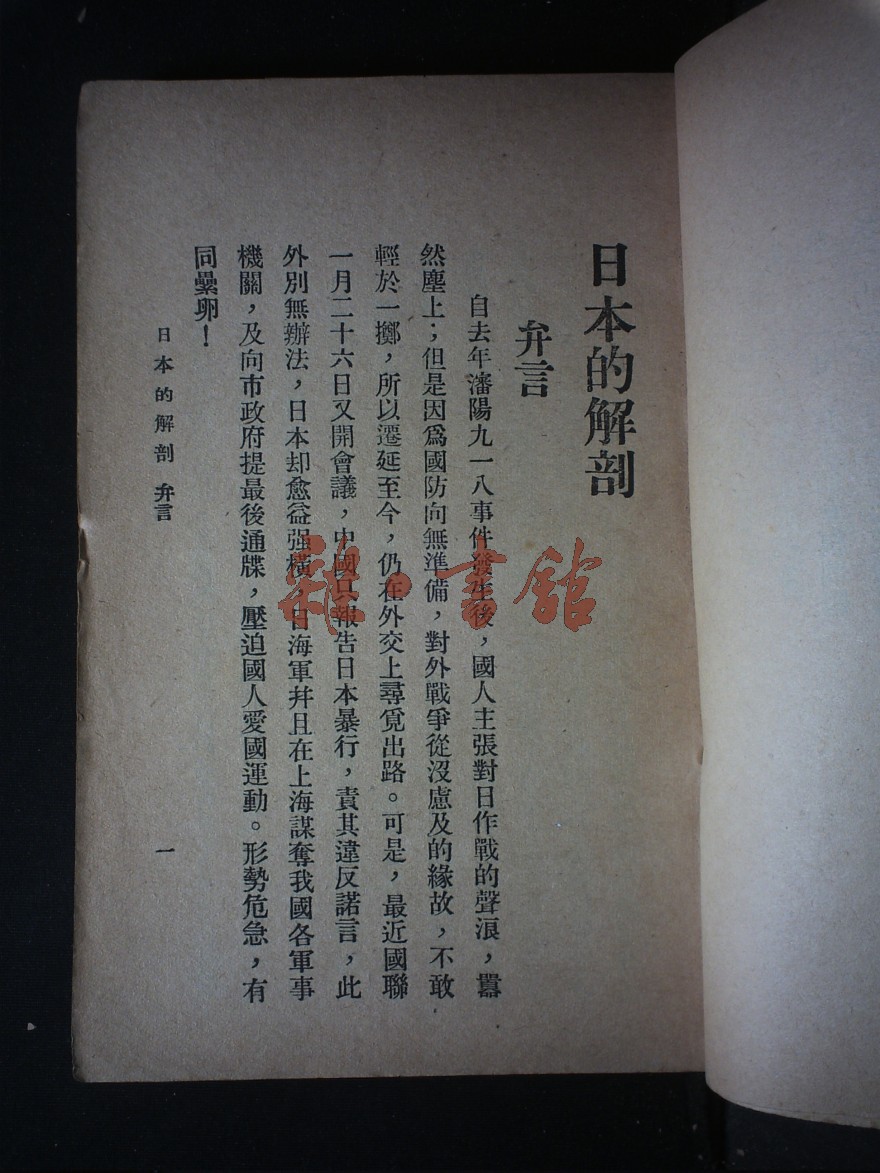 日本的解剖
弁言
自去年瀋陽九一八事件發生後，國人主張對日作戰的聲浪，囂
然塵上；但是因爲國防向無準備，對外戰爭從沒慮及的緣故，不敢
輕於一擲，所以遷延至今，仍在外交上尋覓出路。可是，最近國聯
一月二十六日又開會議，中國只報告日本暴行，責其違反諾言，此
外別無辦法，日本却愈益强橫，日海軍幷且在上海謀奪我國各軍事
機關，及向市政府提最後通牒，壓迫國人愛國運動。形勢危急，有
同纍卵！
日本的解剖 弁言
一
雜·書館